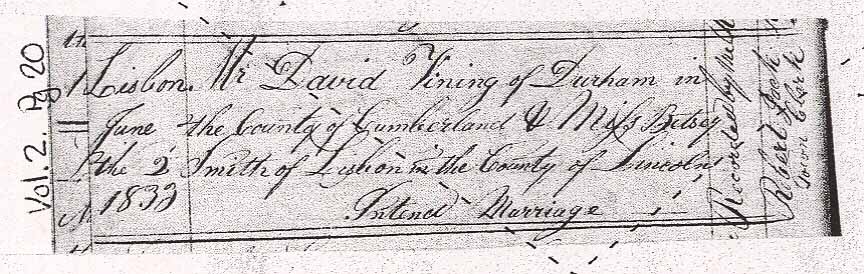 Vol. 2. Pg 20
Lisbon. Mr David Vining of Durham in
June the County of Cumberland & Miss Betsey
the 2 Smith of Lisbon in the County of Lincoln
1833 Intend Marriage
Recorded by me
Town Clerk